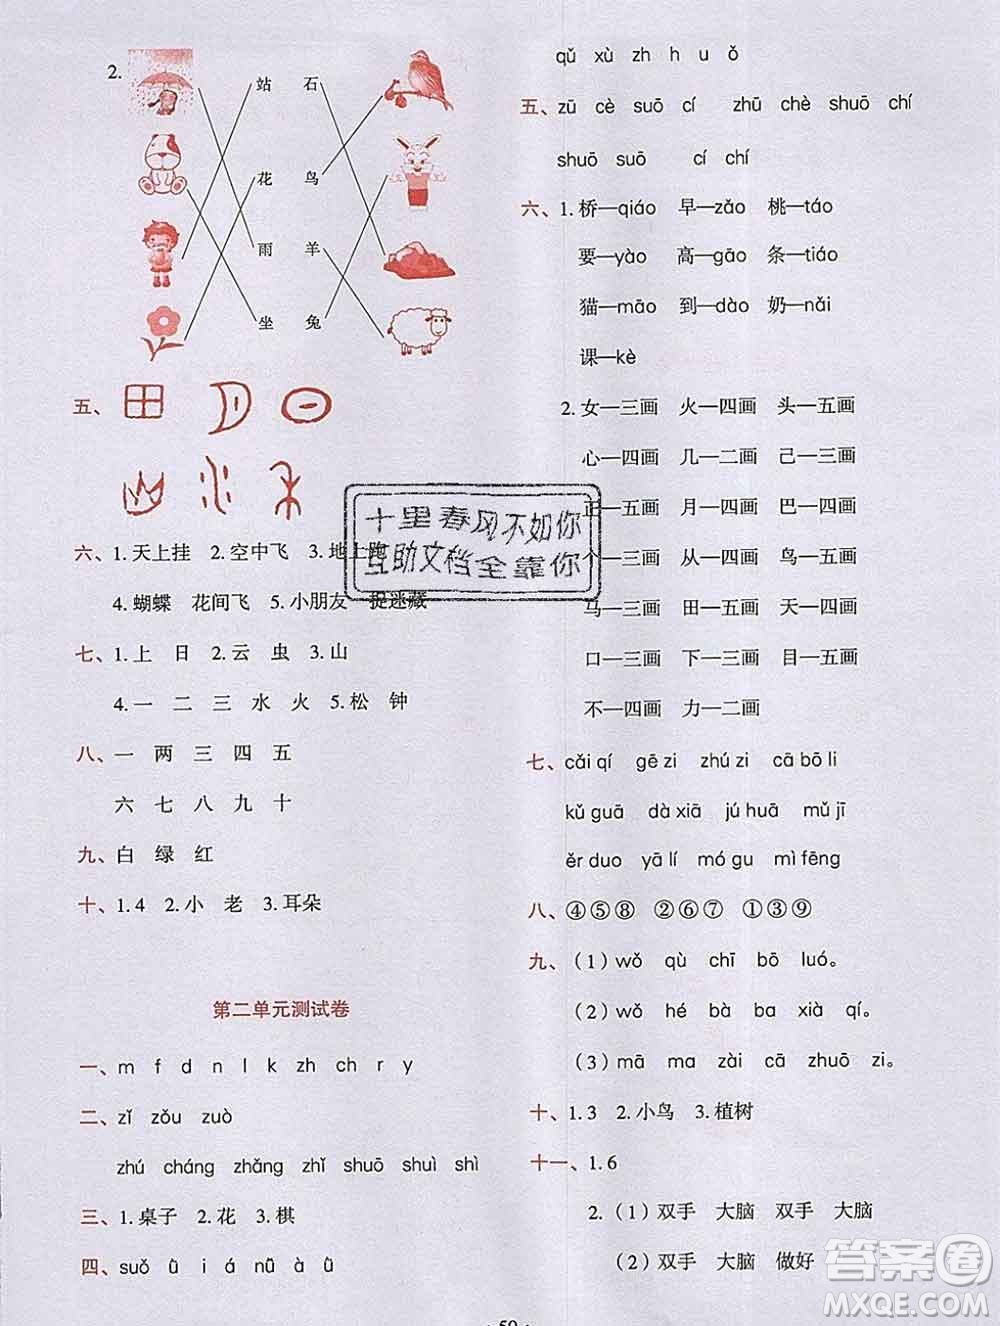 2.
站 石
花 鸟
雨 羊
坐 兔
五、
六、1.天上挂 2.空中飞 3.地上跑
4.蝴蝶 花间飞 5.小朋友 捉迷藏
七、1.上 日 2.云 虫 3.山
4.一 二 三 水 火 5.松 钟
八、一 两 三 四 五
六 七 八 九 十
九、白 绿 红
十、1.4 2.小 老 3.耳朵
第二单元测试卷
一、m f d n l k zh ch r y
二、zǐ zǒu zuò
zhú cháng zhǎng zhǐ shuō shuì shì
三、1.桌子 2.花 3.棋
四、suǒ ǖ i á nǜ à ǜ
qǔ xù zh h u ǒ
五、zū cè suō cí zhū chè shuō chí
shuō suō cí chí
六、1.桥—qiáo 早—zǎo 桃—táo
要—yào 高—gāo 条—tiáo
猫—māo 到—dào 奶—nǎi
课—kè
2.女—三画 火—四画 头—五画
心—四画 几—二画 己—三画
正—五画 月—四画 巴—四画
个—三画 从—四画 鸟—五画
马—三画 田—五画 天—四画
口—三画 下—三画 目—五画
不—四画 力—二画
七、cǎi qí gē zi zhú zi cā bō li
kǔ guā dà xiā jú huā mǔ jī
ěr duo yā lí mó gu mì fēng
八、④⑤⑧ ②⑥⑦ ①③⑨
九、（1）wǒ qù chī bō luó。
（2）wǒ hé bà ba xià qí。
（3）mā ma zài cā zhuō zi。
十、1.3 2.小鸟 3.植树
十一、1.6
2.（1）双手 大脑 双手 大脑
（2）双手 大脑 做好
十里春风不如你
互助文档全靠你
答案圈
MXQE.COM
· 59 ·